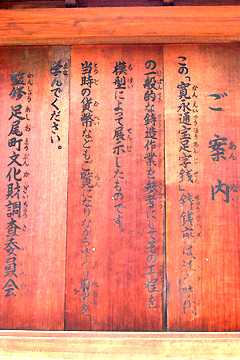 ご案内
この「寛永通宝足字銭」鋳銭
の一般的な鋳造作業を参考にしてその工程を
模型によって展示したものです。
当時の貨幣などもご覧になり
学んでください。
監修 足尾町文化財調査委員会